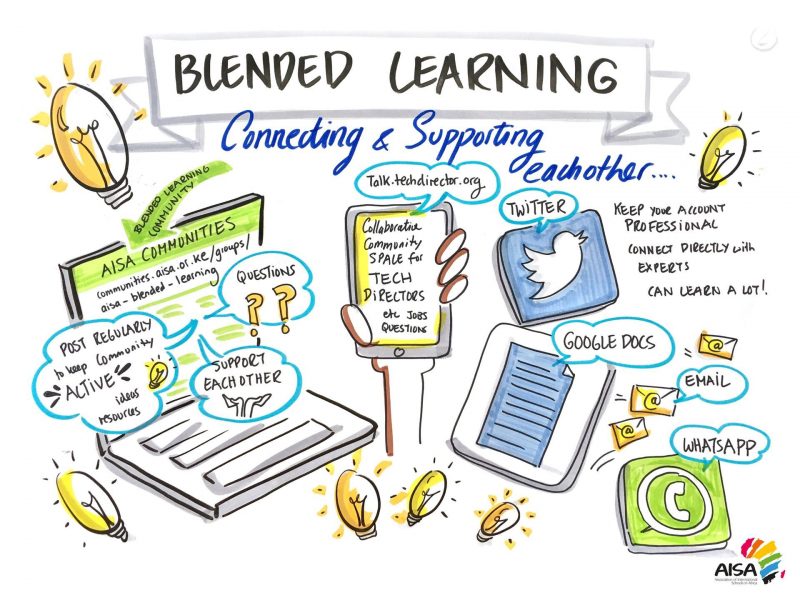 BLENDED LEARNING
Connecting & Supporting
eachother....
BLENDED LEARNING
COMMUNITY
AISA COMMUNITIES
communities.aisa.or.ke/groups/
aisa-blended-learning
QUESTIONS
??
POST REGULARLY
to keep community
ACTIVE
ideas
resources
SUPPORT
EACHOTHER
Talk.techdirector.org
Collaborative
Community
SPACE for
TECH
DIRECTORS
etc JOBS
QUESTIONS
TWITTER
KEEP YOUR ACCOUNT
PROFESSIONAL
CONNECT DIRECTLY with
EXPERTS
CAN LEARN A LOT!.
GOOGLE DOCS
@
EMAIL
@
@
WHATSAPP
AISA
Association of International
Schools in Africa